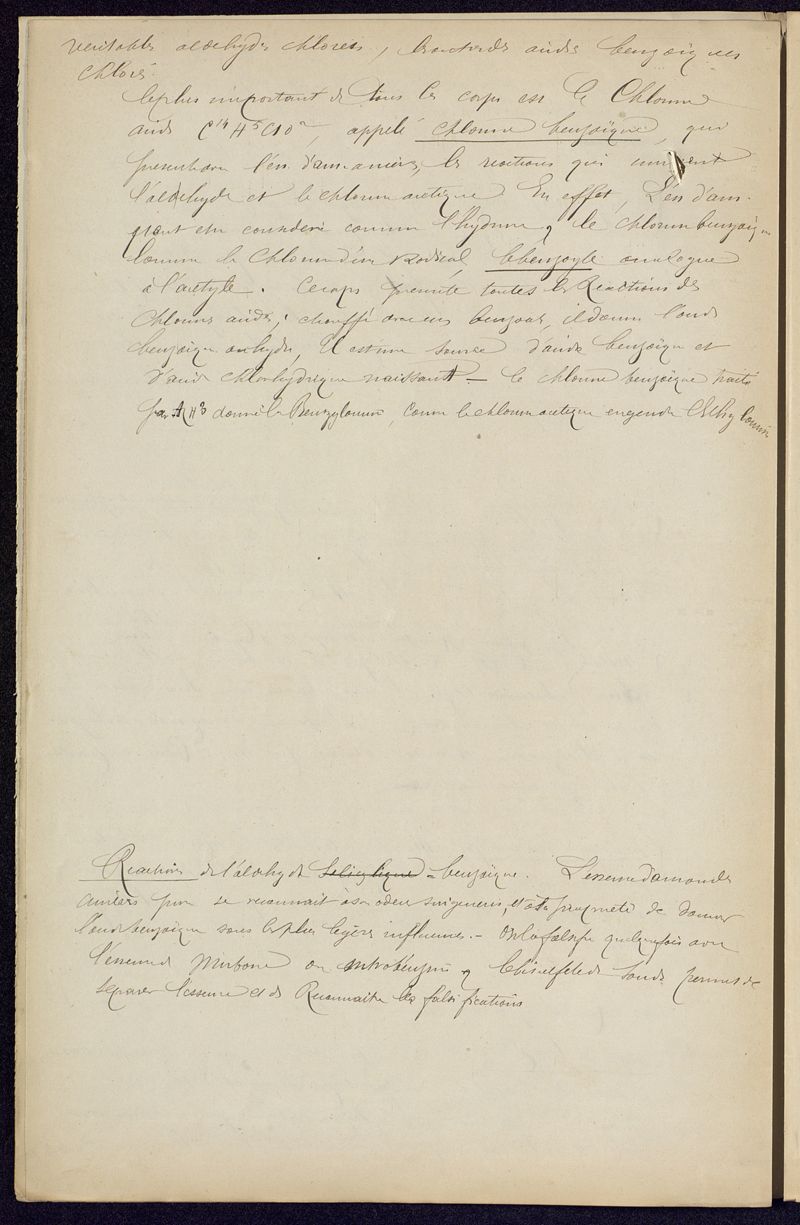 veritables aldehydes chlorés, les autres des acides benzoiques
chlorés.
Le plus important de tous les corps est le Chlorure
acide C14 H5 Cl O2, appelé chlorure benzoïque, qui
l'aldehyde et le chlorure acétique En effet, l'ess d'am.
etre consideré comme l'hydrure, le chlorure benzoiq
comme le chlorure d'un Radical le benzoyle analogue
à l'acetyle. Ce corps presente toutes les Reactions des
chlorures acides; chauffé avec un benzoate, il donne l'acide
benzoique anhydre, Il est une source d'acide benzoïque et
d'acide chlorhydrique naissant — le chlorure benzoïque traité
par AzH3 donne la Benzylamine, comme le chlorure acetique engendre l'Ethylamine
Reactions de l'aldehyde Salicylique - benzoïque. L'essence d'amandes
amères pure se reconnait à son odeur sui generis, et à la propriété de donner
l'acide benzoique sous les plus légères influences. - On la falsifie quelquefois avec
l'essence de Mirbane ou nitrobenzine, le bisulfite de soude permet de
séparer l'essence et de Reconnaitre les falsifications